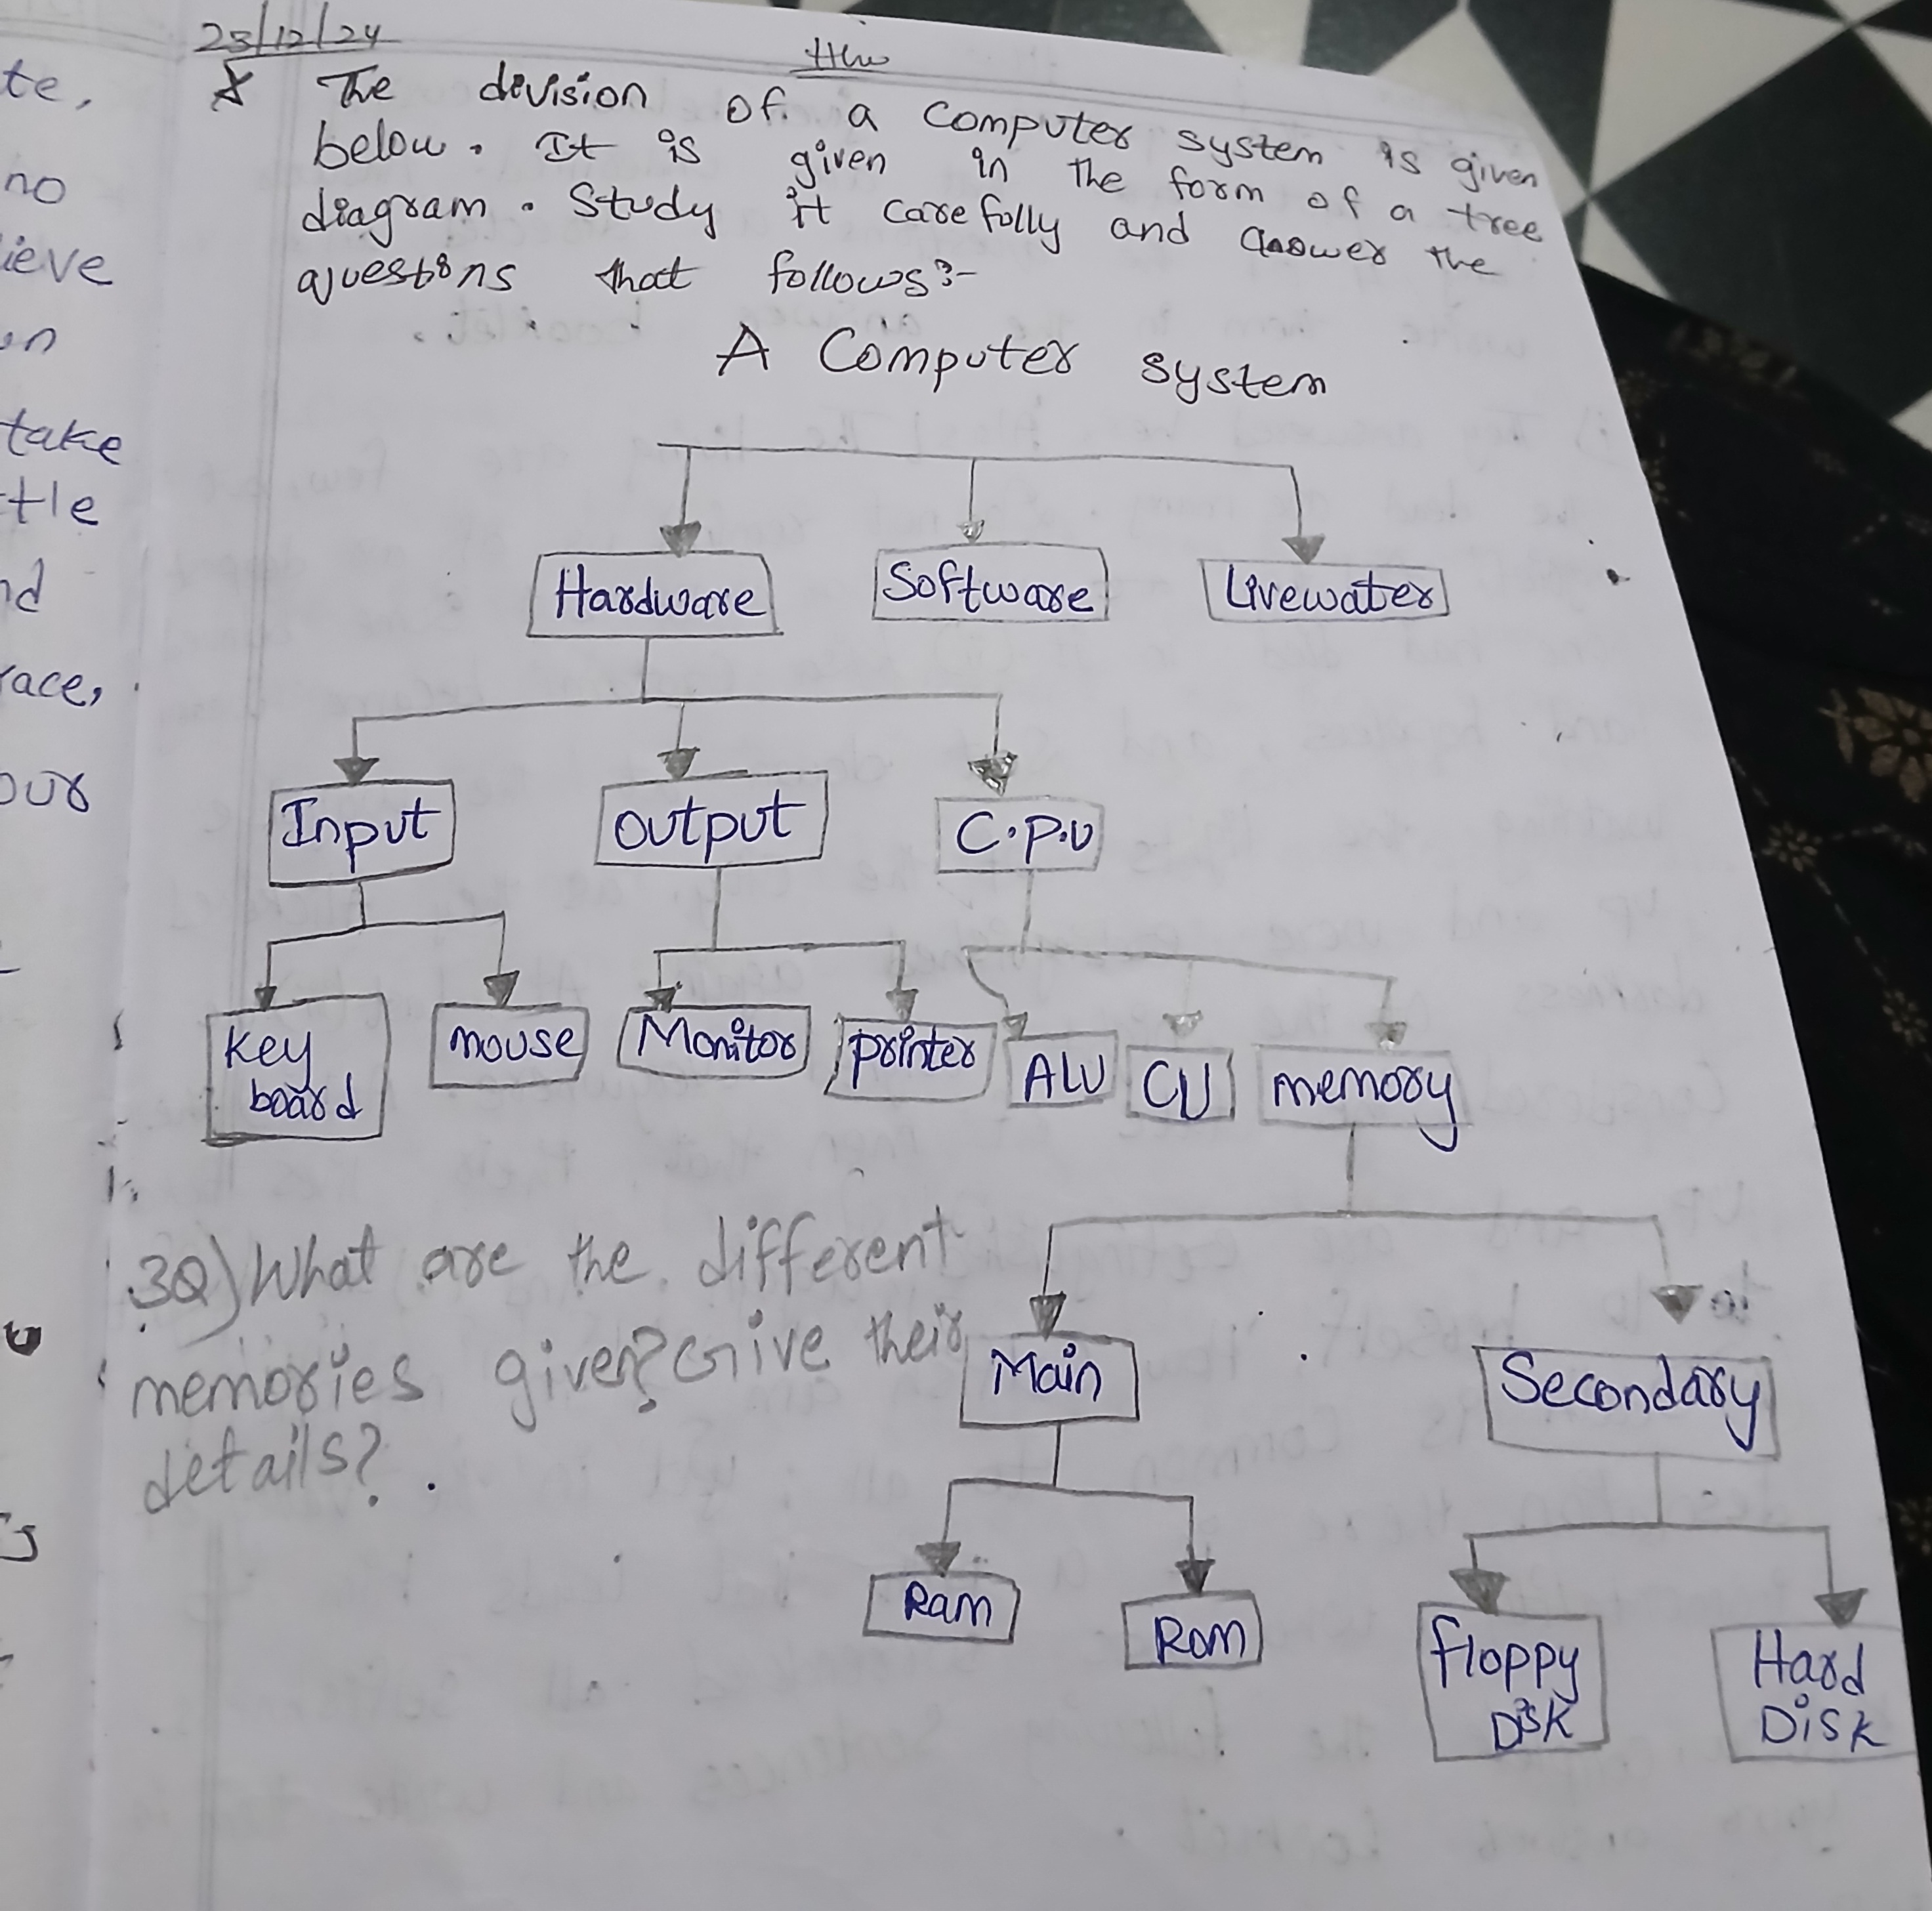 te,
no
ieve
take
tle
nd
race,
our
23/12/24
The division of a computer system is given
below. It is given in the form of a tree
diagram. Study it carefully and answer the
questions that follows:-
A Computer system
Hardware Software Livewater
Input output C.P.U
key board mouse Monitor printer ALU CU memory
3Q) What are the different
memories given? Give their
details?.
Main Secondary
Ram Rom floppy DISK Hard Disk